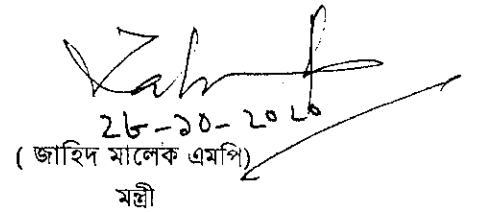 ২৮-১০-২০২০
( জাহিদ মালেক এমপি)
মন্ত্রী